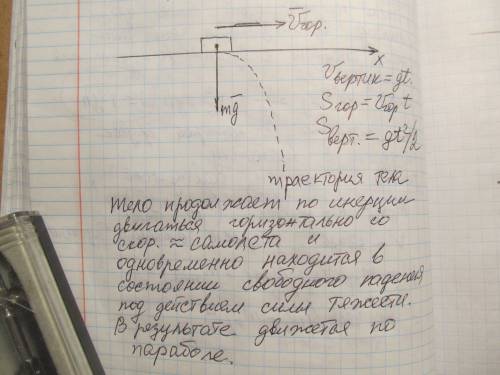 V̅гор.
x
mg̅
Vвертик = gt.
Sгор = Vгор t
Sверт. = gt²/2
траектория тела
тело продолжает по инерции
двигаться горизонтально со
скор. ≈ самолета и
одновременно находится в
состоянии свободного падения
под действием силы тяжести.
В результате движется по
параболе.